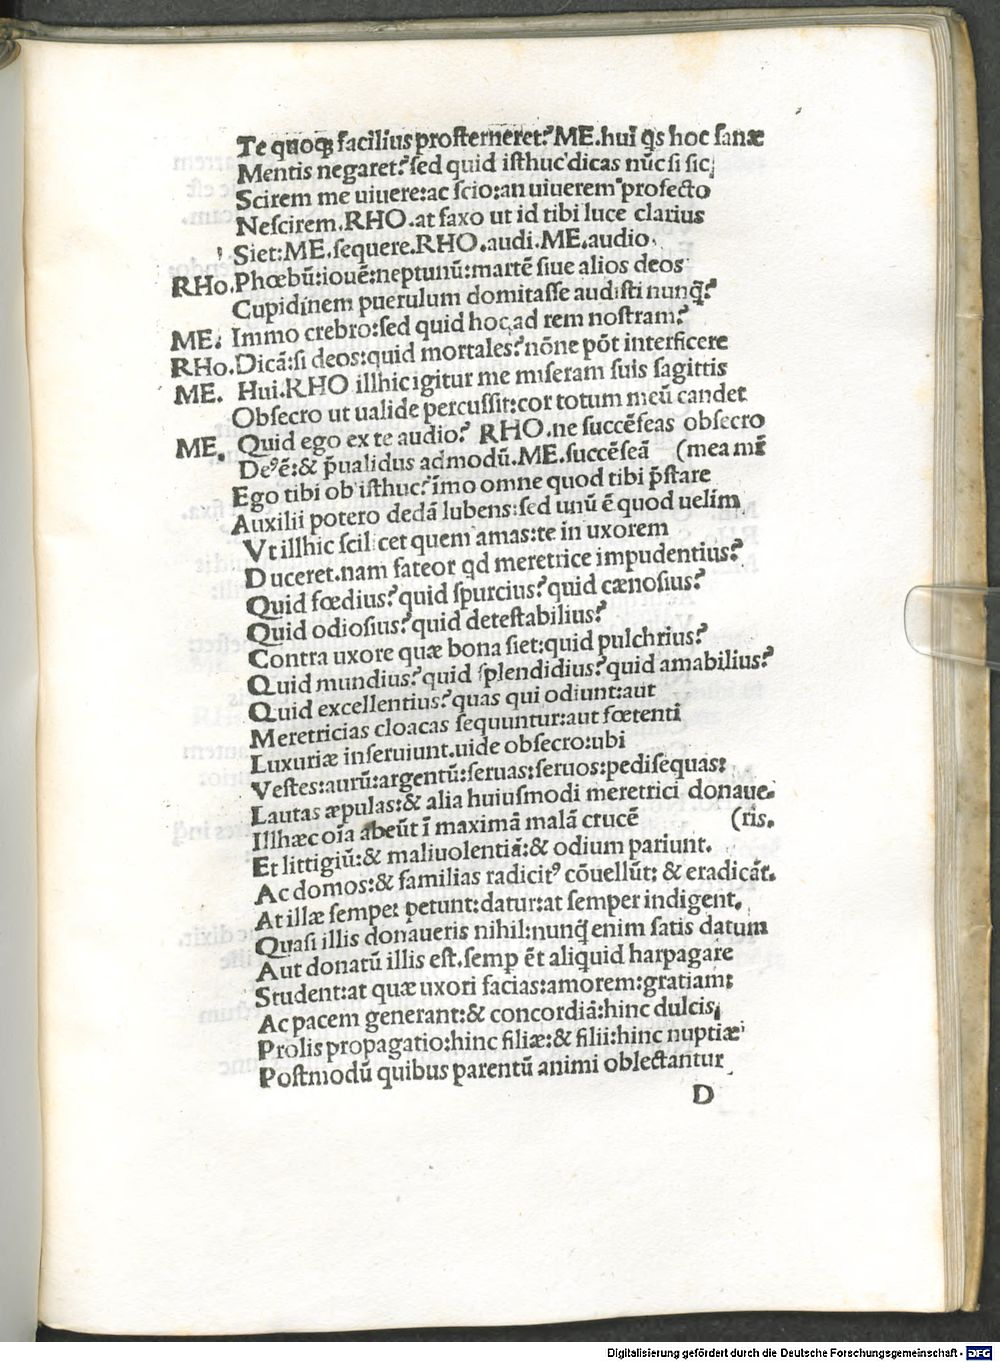 Te quoqꝫ facilius prosterneret? ME. hui q̄s hoc sanæ
Mentis negaret? sed quid isthuc dicas nūc si sic;
Scirem me uiuere: ac scio: an uiuerem profecto
Nescirem. RHO. at faxo ut id tibi luce clarius
Siet: ME. sequere. RHO. audi. ME. audio.
RHo. Phœbū: iouē: neptunū: martē siue alios deos
Cupidinem puerulum domitasse audisti nunq̄?
ME. Immo crebro: sed quid hoc ad rem nostram?
RHo. Dicā: si deos: quid mortales? nōne pōt interficere
ME. Hui. RHO illhic igitur me miseram suis sagittis
Obsecro ut ualide percussit: cor totum meū candet
ME. Quid ego ex te audio? RHO. ne succēseas obsecro
Deꝰ ē: & p̄ualidus admodū. ME. succēseā (mea mr̄
Ego tibi ob isthuc? īmo omne quod tibi p̄stare
Auxilii potero dedā lubens: sed unū ē quod uelim
Vt illhic scilicet quem amas: te in uxorem
Duceret. nam fateor qd meretrice impudentius?
Quid fœdius? quid spurcius? quid cænosius?
Quid odiosius? quid detestabilius?
Contra uxore quæ bona siet: quid pulchrius?
Quid mundius? quid splendidius? quid amabilius?
Quid excellentius? quas qui odiunt: aut
Meretricias cloacas sequuntur: aut fœtenti
Luxuriæ inseruiunt. uide obsecro: ubi
Vestes: aurū: argentū: seruas: seruos: pedisequas:
Lautas æpulas: & alia huiusmodi meretrici donaue-
Illhæc oīa abeūt ī maximā malā crucē (ris.
Et littigiū: & maliuolentiā: & odium pariunt.
Ac domos: & familias radicitꝰ cōuellūt: & eradicāt.
At illæ semper petunt: datur: at semper indigent.
Quasi illis donaueris nihil: nunq̄ enim satis datum
Aut donatū illis est. semꝑ ēt aliquid harpagare
Student: at quæ uxori facias: amorem: gratiam:
Ac pacem generant: & concordiā: hinc dulcis,
Prolis propagatio: hinc filiæ: & filii: hinc nuptiæ
Postmodū quibus parentū animi oblectantur
D
Digitalisierung gefördert durch die Deutsche Forschungsgemeinschaft - DFG